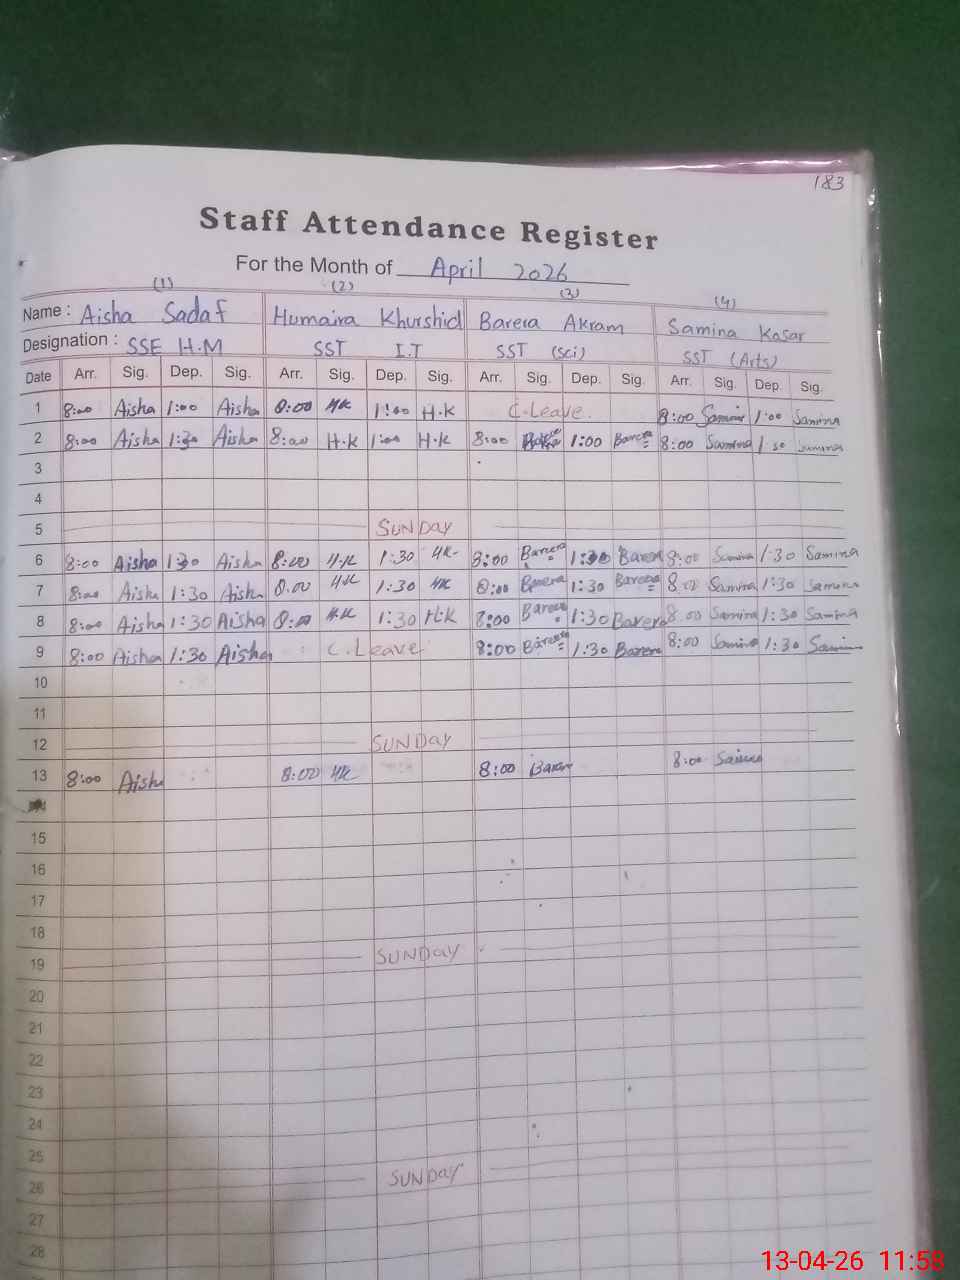 183
Staff Attendance Register
For the Month of April 2026
(1) (2) (3) (4)
Name : Aisha Sadaf Humaira Khurshid Barera Akram Samina Kosar
Designation : SSE H.M SST I.T SST (Sci) SST (Arts)
Date Arr. Sig. Dep. Sig. Arr. Sig. Dep. Sig. Arr. Sig. Dep. Sig. Arr. Sig. Dep. Sig.
1 8:00 Aisha 1:00 Aisha 8:00 HK 1:00 H.K C.Leave. 8:00 Samina 1:00 Samina
2 8:00 Aisha 1:30 Aisha 8:00 H.K 1:00 H.K 8:00 1:00 Barera 8:00 Samina 1:30 Samina
3
4
5 SUNDAY
6 8:00 Aisha 1:30 Aisha 8:00 H.K 1:30 HK 8:00 Barera 1:30 Barera 8:00 Samina 1:30 Samina
7 8:00 Aisha 1:30 Aisha 8:00 HK 1:30 HK 8:00 Barera 1:30 Barera 8:00 Samina 1:30 Samina
8 8:00 Aisha 1:30 Aisha 8:00 H.K 1:30 H.K 8:00 Barera 1:30 Barera 8:00 Samina 1:30 Samina
9 8:00 Aisha 1:30 Aisha C.Leave 8:00 Barera 1:30 Barera 8:00 Samina 1:30 Samina
10
11
12 SUNDAY
13 8:00 Aisha 8:00 HK 8:00 Barera 8:00 Samina
15
16
17
18
19 SUNDAY
20
21
22
23
24
25
26 SUNDAY
27
28
13-04-26 11:58